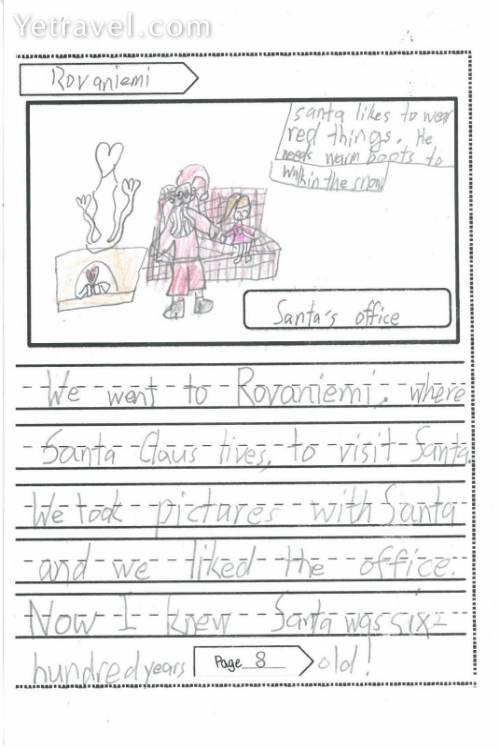 Yetravel.com
Rovaniemi
santa likes to wear
red things. He
needs warm boots to
walk in the snow
Santa's office
We went to Rovaniemi, where
Santa Claus lives, to visit Santa.
We took pictures with Santa
and we liked the office.
Now I knew Santa was six-
hundred years old!
Page 8